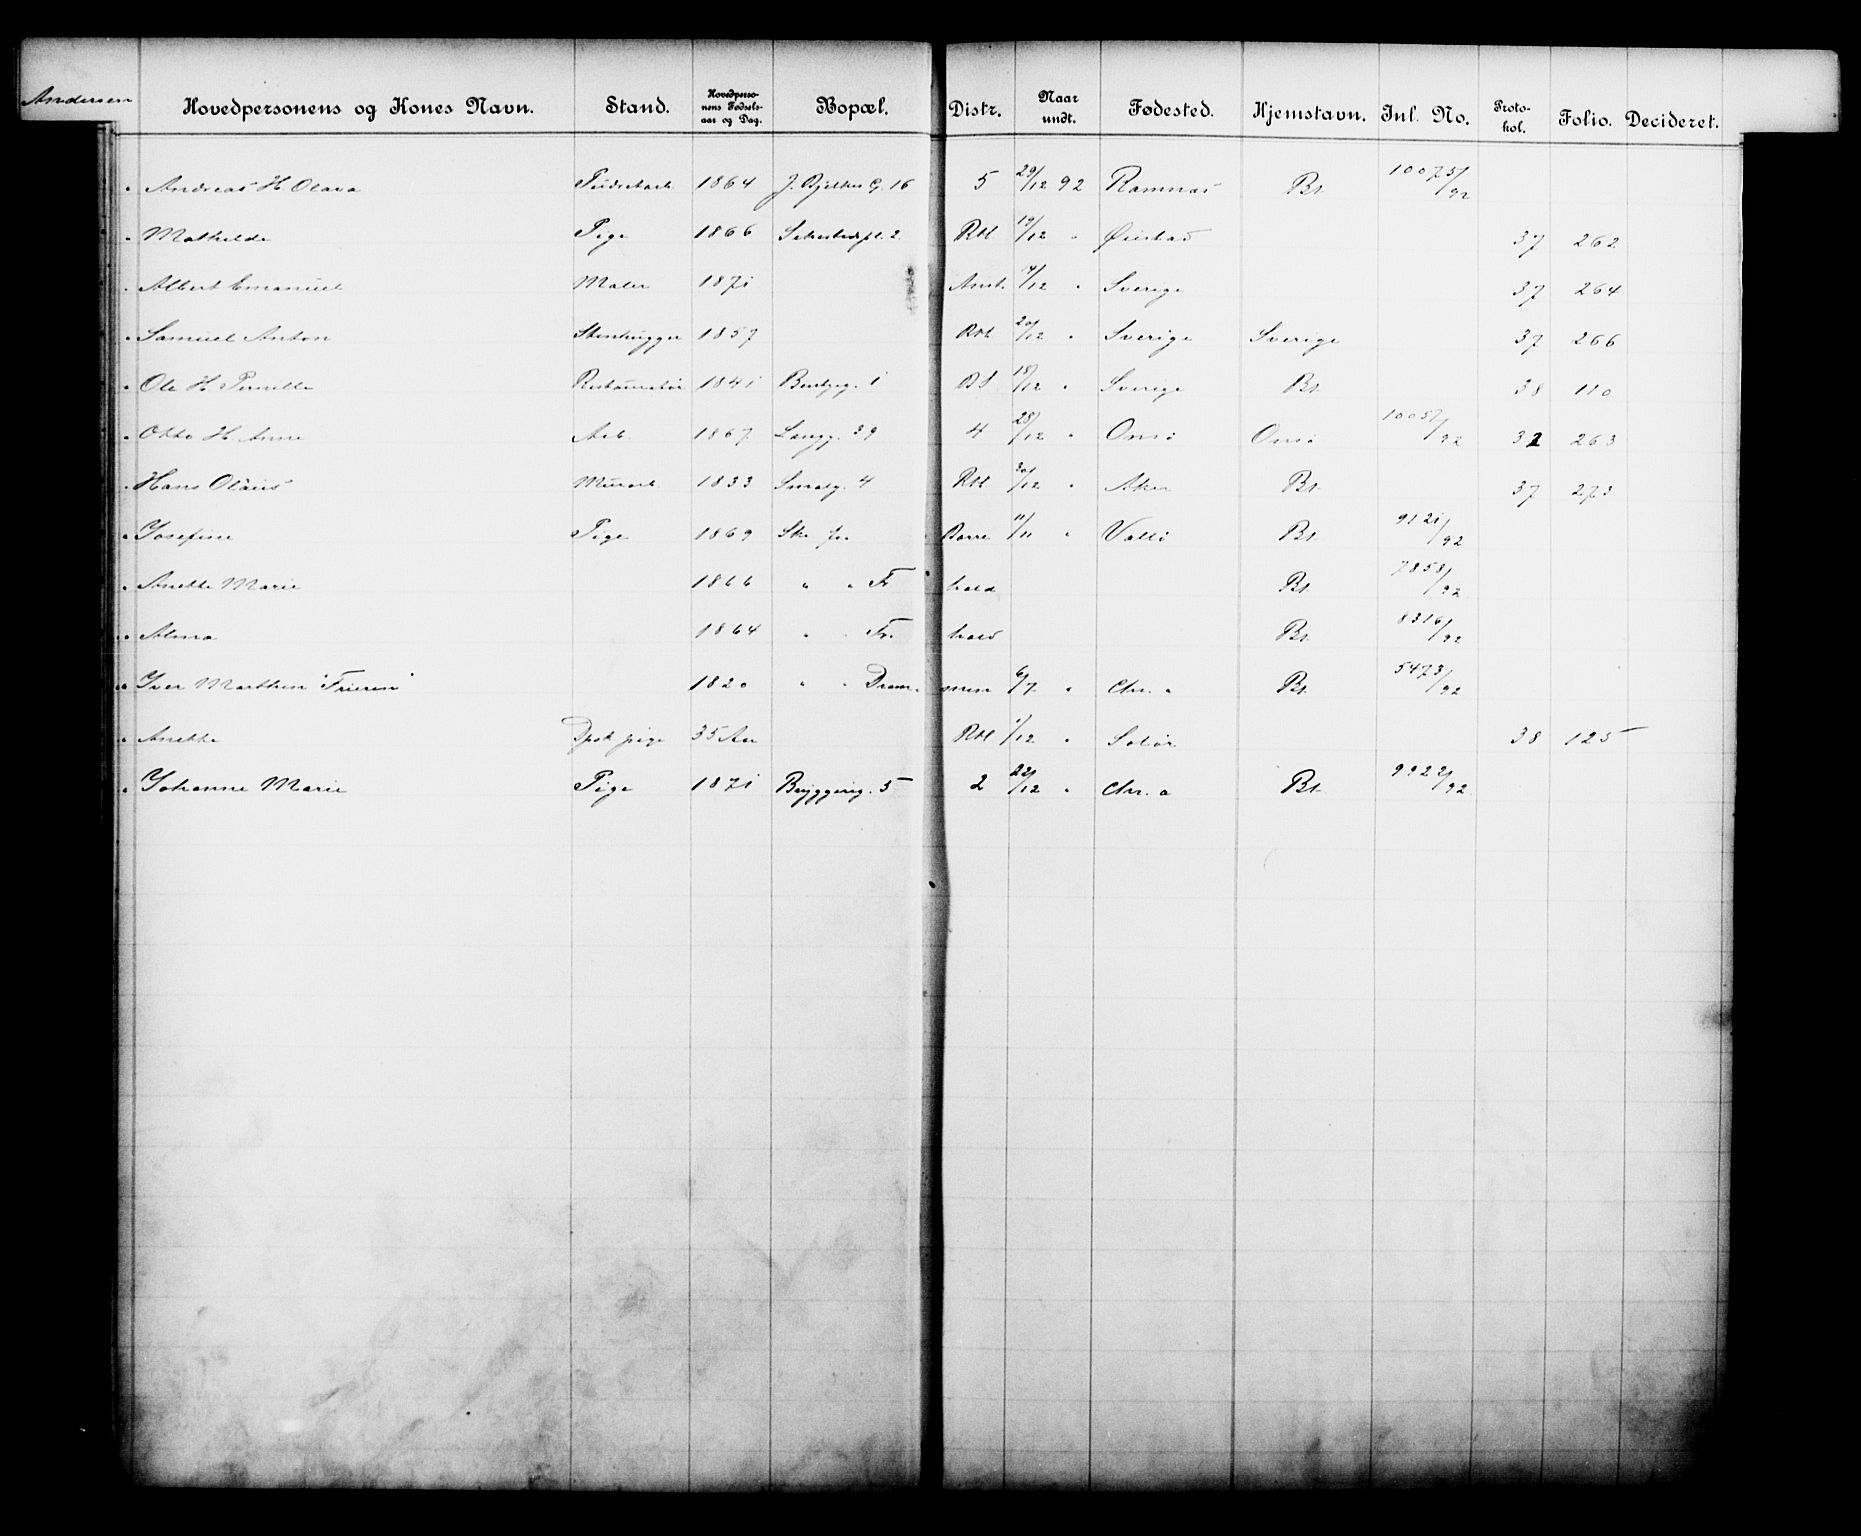 Andersen Hovedpersonens og Kones Navn. Stand. Hovedpersonens Fødselsaar og Dag. Bopæl. Distr. Naar undt. Fødested. Hjemstavn. Inl. No. Protokol. Folio. Decideret.
" Andreas H Olava 1864 J. Bjelkes G. 16 5 29/12 92 Ramnæs Bt. 10075/92
" Mathilde Pige 1866 Sehestedspl. 2 Rtl 19/12 " Øiestad 37 262
" Albert Emanuel Maler 1871 Anst. 4/12 " Sverige 37 264
" Samuel Anton Stenhugger 1857 Rtl 20/12 " Sverige Sverige 37 266
" Ole H Pernille Restauratør 1841 1 18/12 " Sverige Bt. 38 110
" Otto H Anne Arb. 1867 Langg. 39 4 28/12 " Onsø Onsø 10057/92 263
" Hans Olaus Murarb. 1833 Smalg. 4 Rtl 30/12 " Aker Bt. 37 273
" Josefine Pige 1869 Borre 11/11 " Vallø Bt. 9121/92
" Anette Marie 1866 " " Fr. hald Bt. 7858/92
" Alma 1864 " " Fr. hald Bt. 8316/92
" Iver Marthin "Frieren" 1820 " " Dram- men 6/7 " Chr.a Bt. 5473/92
" Anette pige 35 Aar Rtl 1/12 " Solør 38 125
" Johanne Marie Pige 1871 Bryggerig. 5 2 22/12 " Chr.a Bt. 9922/92